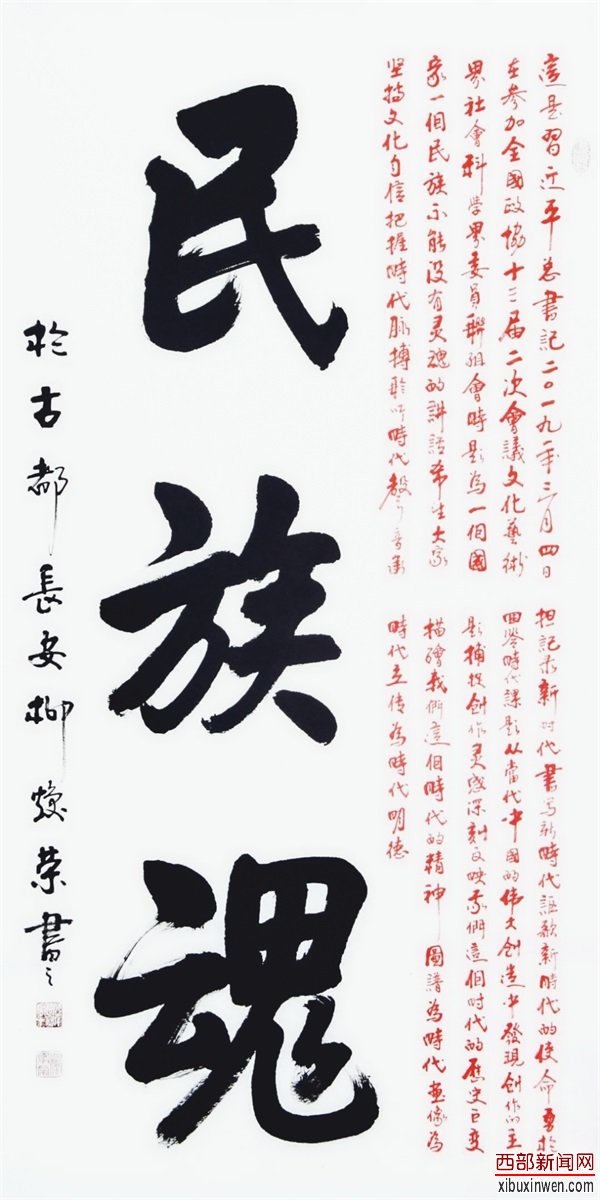 這是習近平总書記二〇一九年三月四日
在参加全國政協十三届二次會議文化藝術
界社會科學界委員聯組會時题為一個國
家一個民族不能没有灵魂的讲話希望大家
坚持文化自信把握時代脉搏聆听時代聲音承
担記录新时代書写新時代謳歌新時代的使命勇於
回答時代課题从當代中國的伟大創造中發現創作的主
题捕捉創作灵感深刻反映我們這個时代的歷史巨变
描繪我們這個時代的精神圖譜為時代画像為
時代立传為時代明德
民族魂
於古都長安柳焕荣書之
西部新闻网
xibuxinwen.com